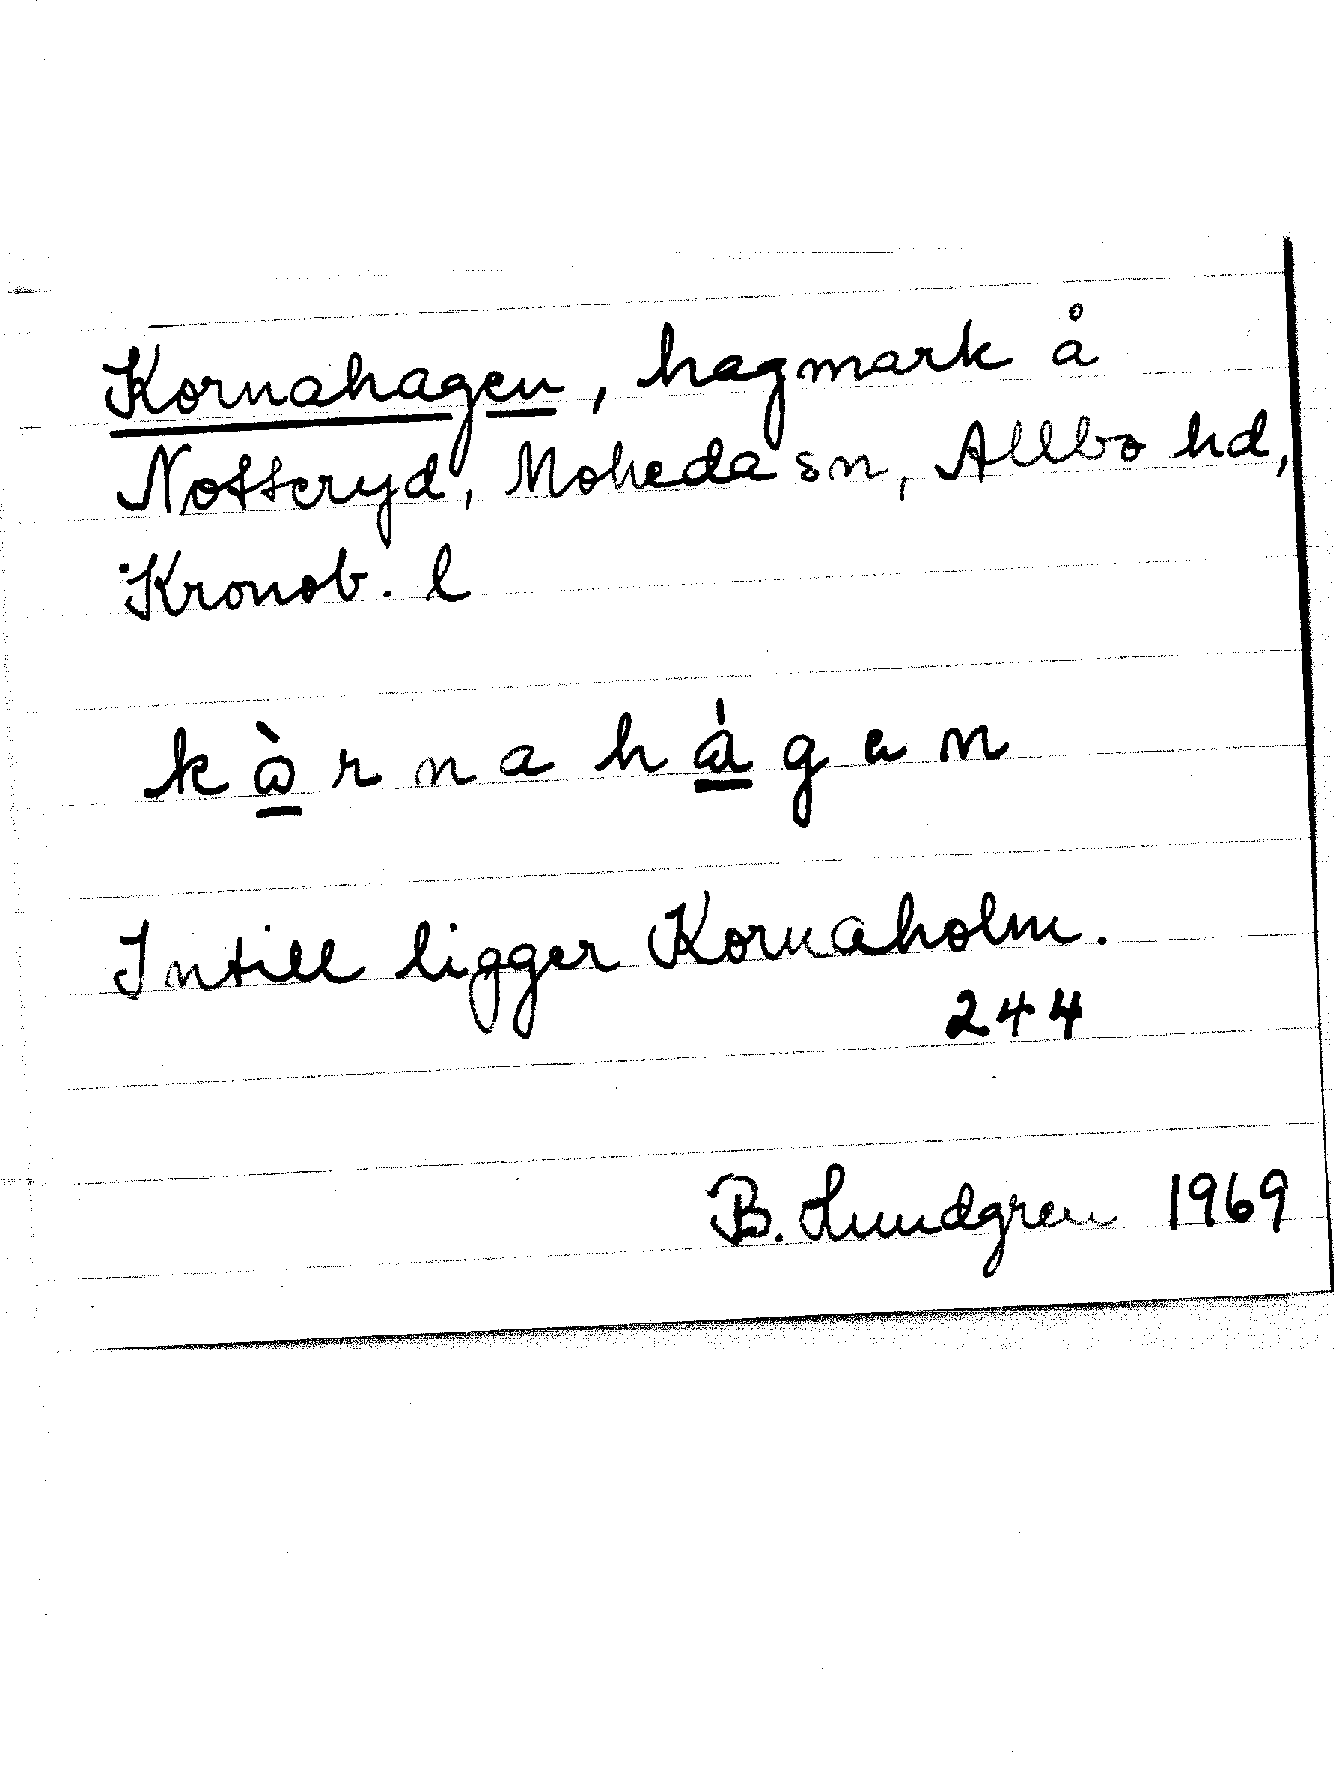 Kornahagen, hagmark å
Notteryd, Moheda sn, Allbo hd,
Kronob. l
kò̱rnahá̱gen
Intill ligger Kornaholm.
244
B. Lundgren 1969